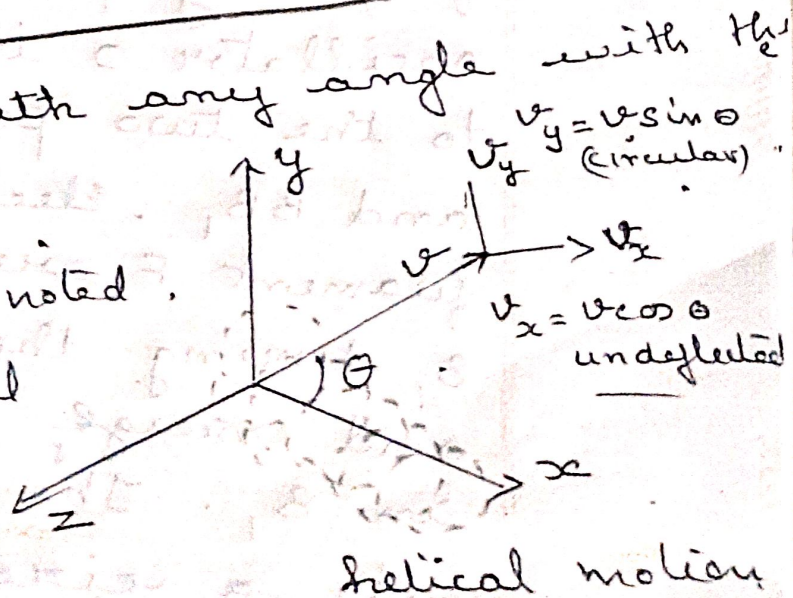 with any angle with the
y
v_y
v_y = v sin θ
(circular)
v
v_x
noted.
v_x = v cos θ
undeflected
θ
x
z
helical motion